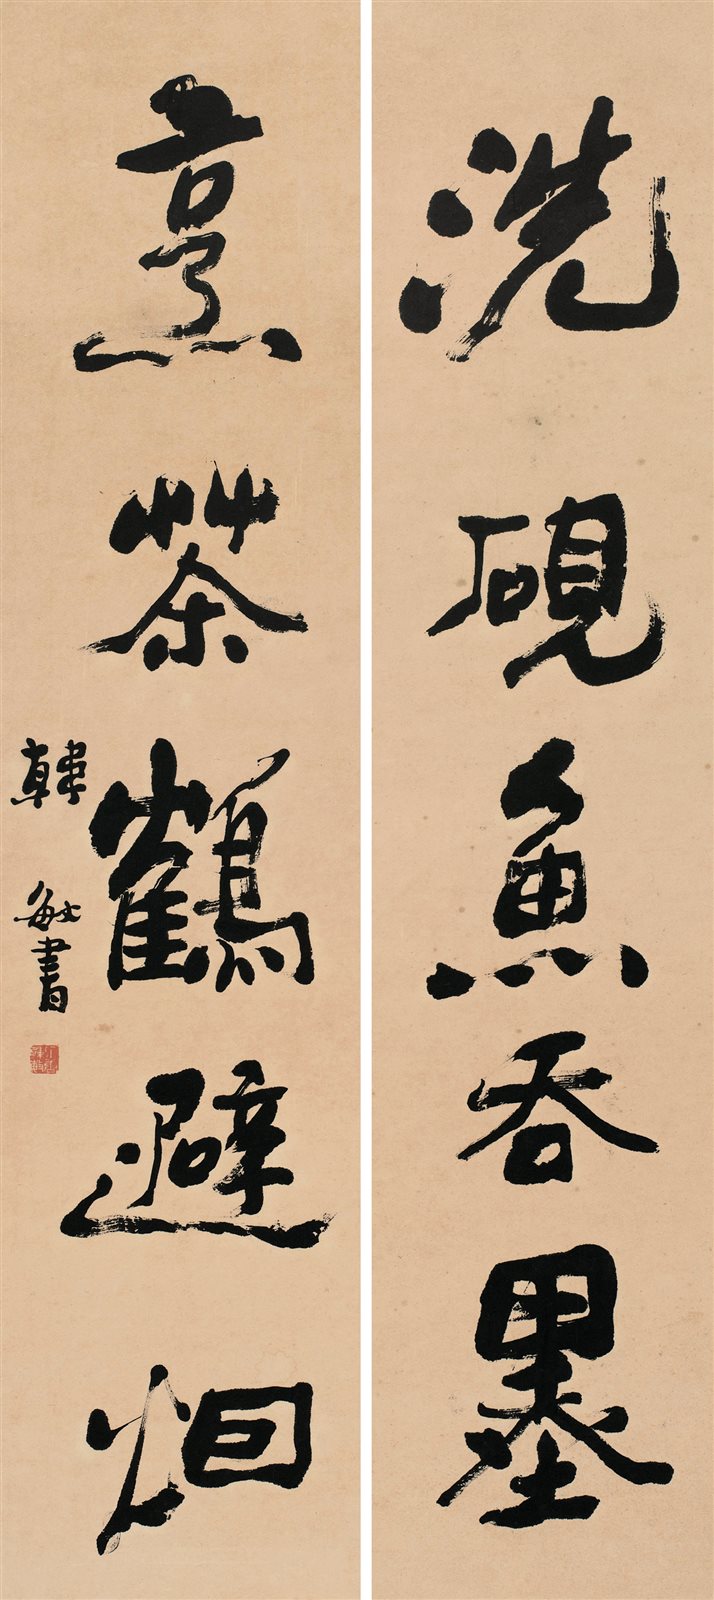 洗硯魚吞墨
烹茶鶴避烟
韓敏書